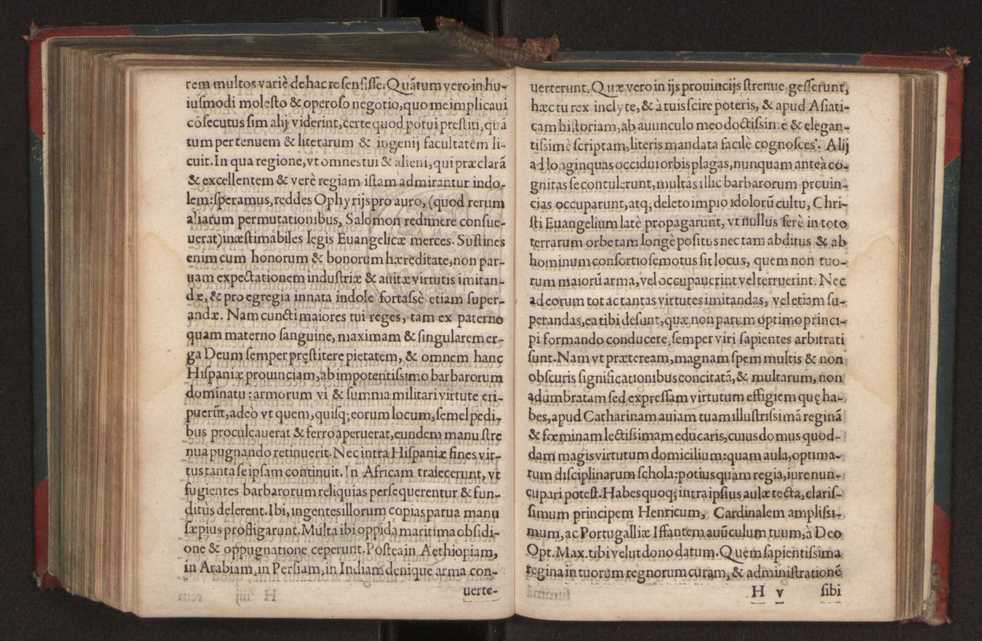 rem multos variè de hac re sensisse. Quãtum vero in hu-
iusmodi molesto & operoso negotio, quo me implicaui
cõsecutus sim alij viderint, certe quod potui prestiti, quã
tum per tenuem & literarum & ingenij facultatem li-
cuit. In qua regione, vt omnes tui & alieni, qui præclarã
& excellentem & verè regiam istam admirantur indo-
lem: speramus, reddes Ophyrijs pro auro, (quod rerum
aliarum permutationibus, Salomon redimere consue-
uerat) inæstimabiles legis Euangelicæ merces. Sustines
enim cum honorum & bonorum hæreditate, non par-
uam expectationem industriæ & auitæ virtutis imitan-
dæ, & pro egregia innata indole fortassè etiam super-
andæ. Nam cuncti maiores tui reges, tam ex paterno
quam materno sanguine, maximam & singularem er-
ga Deum semper prestitere pietatem, & omnem hanc
Hispaniæ prouinciam, ab impotentissimo barbarorum
dominatu: armorum vi & summa militari virtute eri-
puerũt, adeo vt quem, quisq; eorum locum, semel pedi-
bus proculcauerat & ferro aperuerat, eundem manu stre
nua pugnando retinuerit. Nec intra Hispaniæ fines vir-
tus tanta se ipsam continuit. In Africam traiecerunt, vt
fugientes barbarorum reliquias persequerentur & fun-
ditùs delerent. Ibi, ingentes illorum copias parua manu
sæpius profligarunt. Multa ibi oppida maritima obsidi-
one & oppugnatione ceperunt. Postea in Aethiopiam,
in Arabiam, in Persiam, in Indiam denique arma con-
uerte-
uerterunt. Quæ vero in ijs prouincijs strenue gesserunt,
hæc tu rex inclyte, & à tuis scire poteris, & apud Asiati-
cam historiam, ab auunculo meo doctissimè & elegan-
tissimè scriptam, literis mandata facilè cognosces. Alij
ad longinquas occidui orbis plagas, nunquam anteà co-
gnitas se contulerunt, multas illic barbarorum prouin-
cias occuparunt, atq; deleto impio idolorũ cultu, Chri-
sti Euangelium latè propagarunt, vt nullus ferè in toto
terrarum orbe tam longè positus nec tam abditus & ab
hominum consortio semotus sit locus, quem non tuo-
rum maiorũ arma, vel occupauerint vel terruerint. Nec
ad eorum tot ac tantas virtutes imitandas, vel etiam su-
perandas, ea tibi desunt, quæ non parum optimo princi-
pi formando conducere, semper viri sapientes arbitrati
sunt. Nam vt prætereram, magnam spem multis & non
obscuris significationibus concitatã, & multarum, non
adumbratam sed expressam virtutum effigiem quę ha-
bes, apud Catharinam auiam tuam illustrissimã reginã
& fœminam lectissimam educaris, cuius domus quod-
dam magis virtutum domicilium: quam aula, optima-
tum disciplinarum schola: potius quam regia, iure nun-
cupari potest. Habes quoq; intra ipsius aulæ tecta, claris-
simum principem Henricum, Cardinalem amplissi-
mum, ac Portugalliæ Iffantem auũculum tuum, à Deo
Opt. Max. tibi velut dono datum. Quem sapientissima
regina in tuorum regnorum curam, & administrationẽ
H v sibi